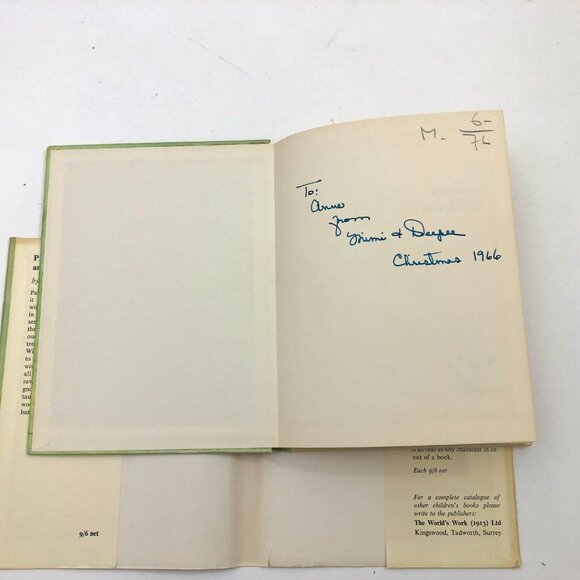 M- 6-
76
To:
Anne
from
Mimi &
Christmas 1966
P
an
by
Pa
it
wit
in
sen
the
out
tro
Wi
to
wit
all
rav
gno
tau
woo
but
9/6 net
it as real as any character in or
out of a book.
Each 9/6 net
For a complete catalogue of
other children's books please
write to the publishers:
The World's Work (1913) Ltd
Kingswood, Tadworth, Surrey